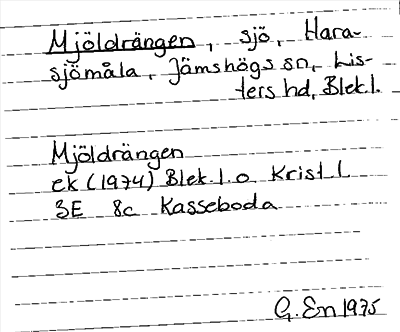 Mjöldrängen, sjö, Hara-
sjömåla, Jämshögs sn, Lis-
ters hd, Blek.l.
Mjöldrängen
ek (1974) Blek.l. o Krist.l.
3E 8c Kasseboda
G. En 1975